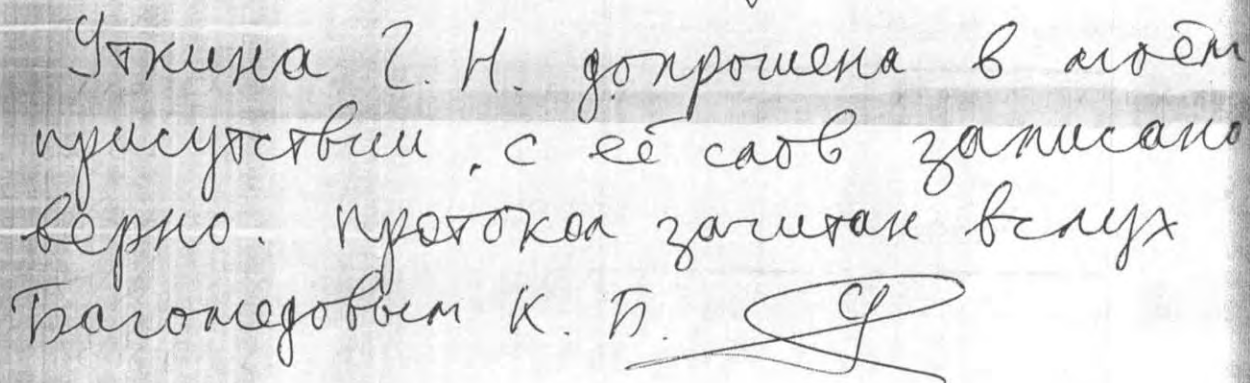 Уткина Г. Н. допрошена в моём
присутствии, с её слов записано
верно. протокол зачитан вслух
Багомедовым К. Б.